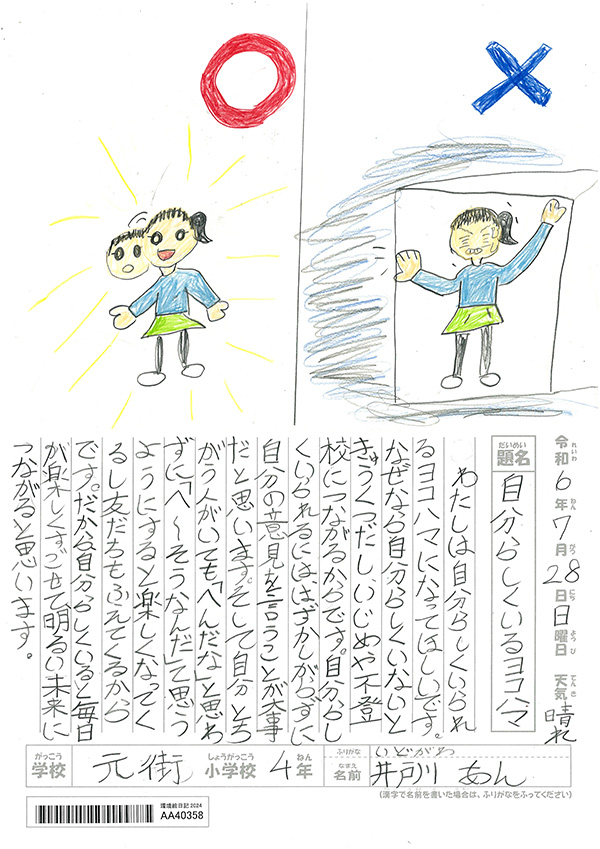 令和6年7月28日日曜日 天気 晴れ
れいわ ねん がつ にち ようび てんき
だいめい
題名 自分らしくいるヨコハマ
わたしは自分らしくいられ
るヨコハマになってほしいです。
なぜなら自分らしくいないと
きゅうくつだし、いじめや不登
校につながるからです。自分らし
くいられるには、はずかしがらずに
自分の意見を言うことが大事
だと思います。そして自分とち
がう人がいても「へんだな」と思わ
ずに「へ〜そうなんだ」て思う
ようにすると楽しくなってく
るし友だちもふえてくるから
です。だから自分らしくいると毎日
が楽しくすごせて明るい未来に
つながると思います。
がっこう しょうがっこう ねん
学校 元街 小学校 4年
ふりがな いどがわ
なまえ
名前 井戸川 あん
(漢字で名前を書いた場合は、ふりがなをふってください)
環境絵日記2024
AA40358